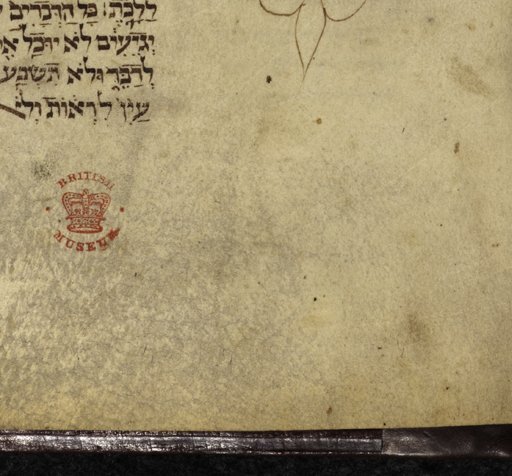 לָלָכֶת׃ כָּל הַדְּבָרִים
יְגֵעִים לֹא יוּכַל
לְדַבֵּר וְלֹא תִשְׂבַּע
עַיִן לִרְאוֹת
BRITISH
MUSEUM